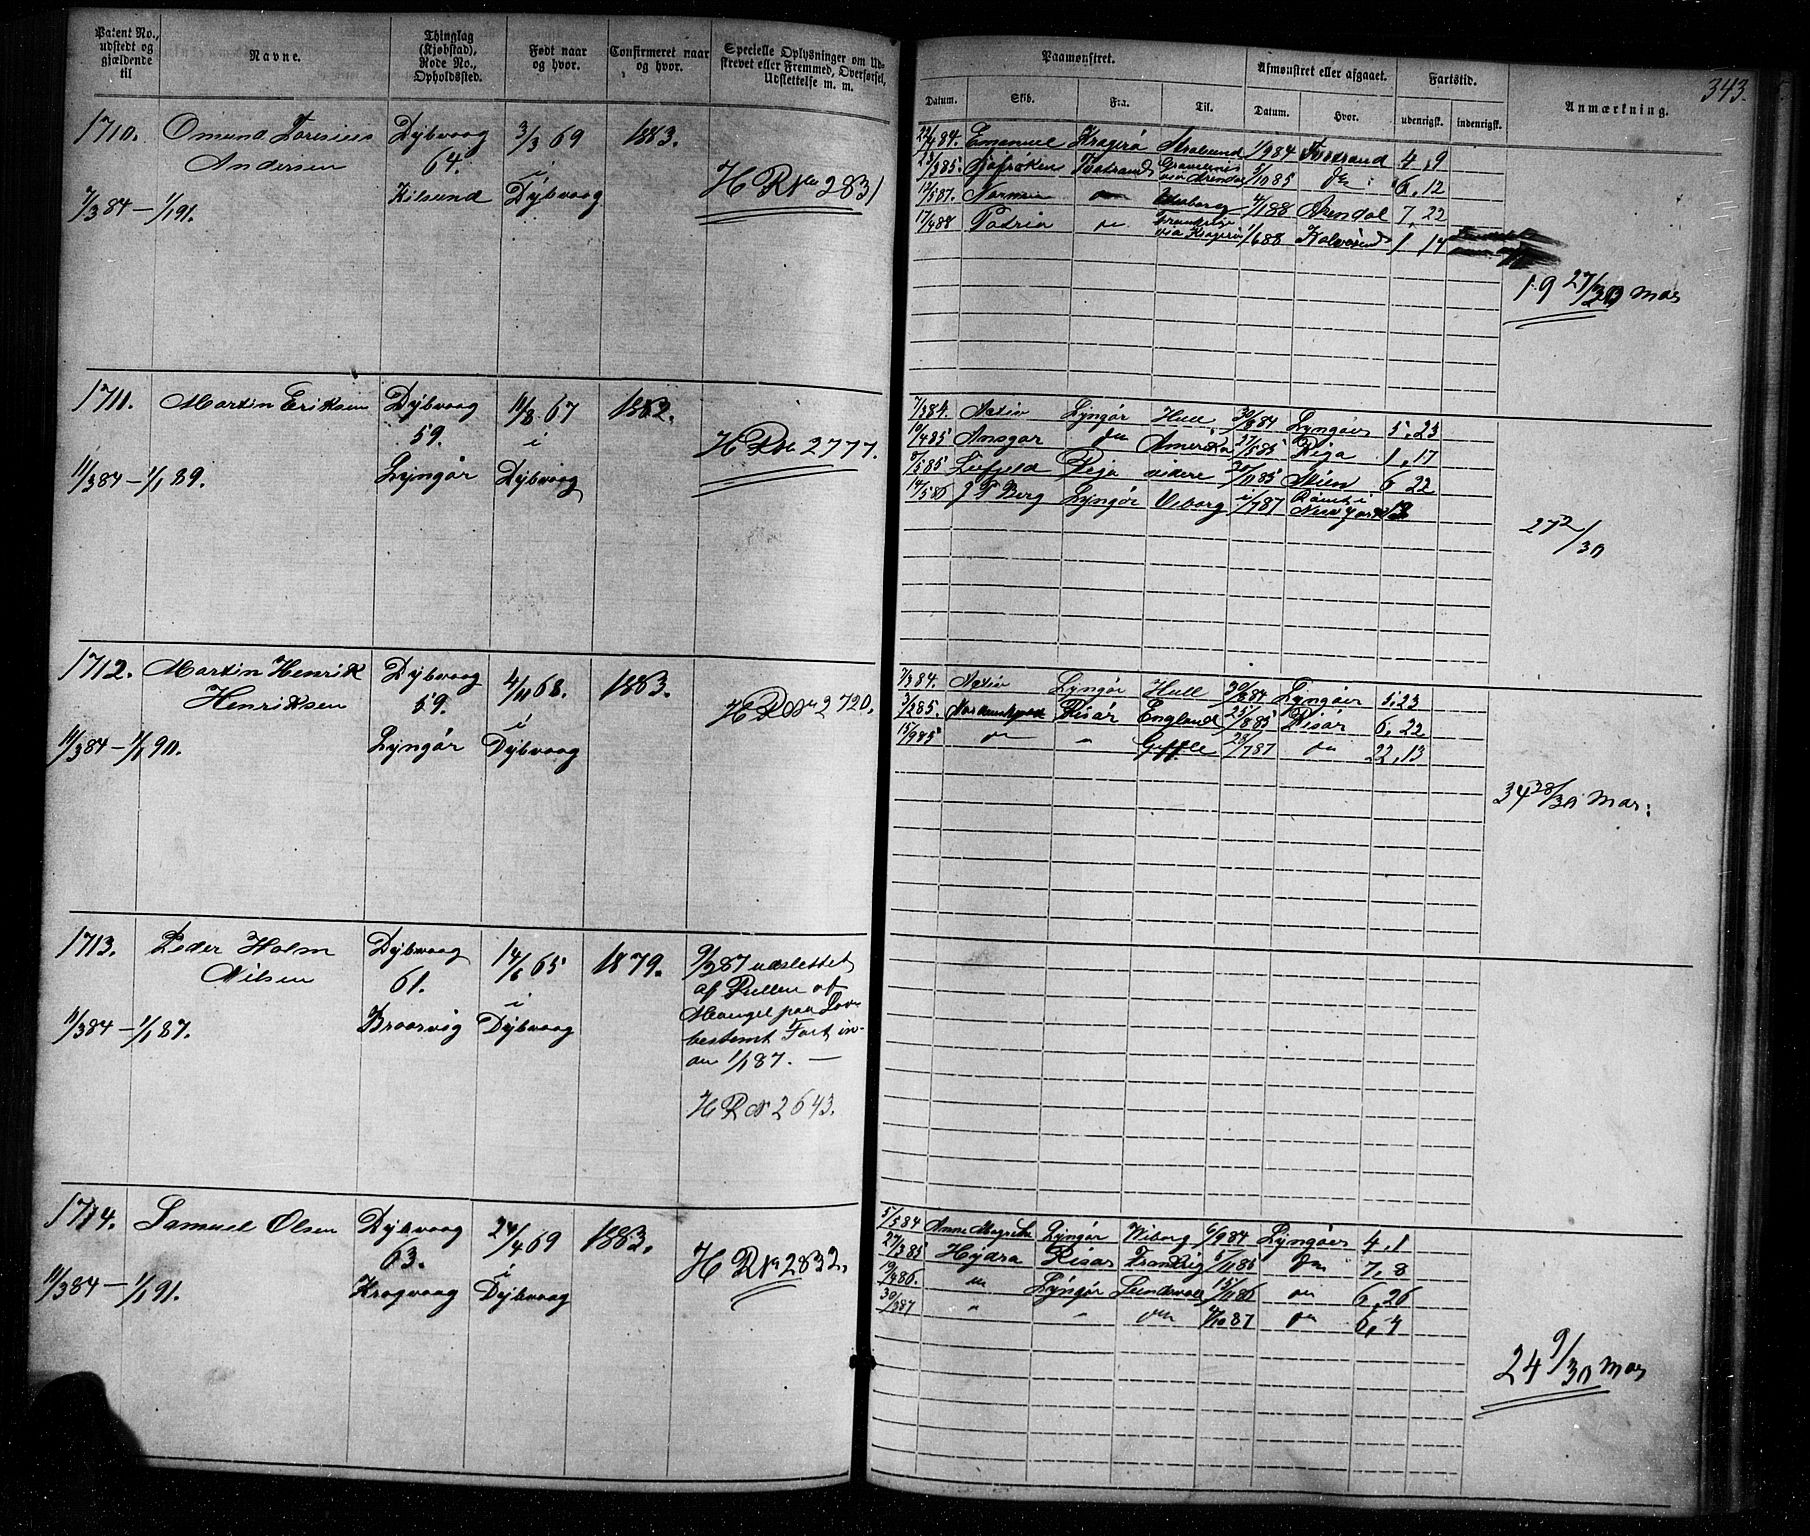 343.
Patent No., udstedt og gjældende til
Navne.
Thinglag (Kjøbstad), Rode No., Opholdssted.
Født naar og hvor.
Confirmeret naar og hvor.
Specielle Oplysninger om Udskrevet eller Fremmed, Overførsel, Udslettelse m. m.
Paamønstret.
Afmønstret eller afgaaet.
Fartstid.
Anmærkning.
Datum. Skib. Fra. Til. Datum. Hvor. udenrigsk. indenrigsk.
1710. Omund Toresius Dybvaag 3/3 69 1883.
Andersen 64. i
7/3 84 – 1/1 91. Kilsund Dybvaag
H R No 2831
22/4 84. Emanuel Kragerø Stralsund 1/9 84 4,9
23/3 85. 5/10 85 do 6,12
12/5 87. 4/1 88 Arendal 7,22
17/4 88 Patria do via Kragerø 1/6 88 1,14
19 27/30 mar
1711. Martin Eriksen Dybvaag 11/8 67 1882.
59. i
11/3 84 – 1/1 89. Lyngør Dybvaag
H R No 2777.
7/3 84. Activ Lyngør Hull 30/8 84 Lyngør 5,23
10/4 85 Ansgar do Amerika 27/5 85 Riga 1,17
5/5 85 Riga videre 85 Skien 6 22
14/5 86 J P Berg Lyngør Viborg 1/7 87 Rømt i New York
27 2/30
1712. Martin Henrik Dybvaag 4/11 68. 1883.
Henriksen 59. i
11/3 84 – 1/1 90. Lyngør Dybvaag
H R No 2720.
7/3 84. Activ Lyngør Hull 30/8 84 Lyngør 5,23
3/2 85. Risør England 25/8 85 Risør 6,22
15/9 85 do " Geffle 28/7 87 do 22,13
34 28/30 mar:
1713. Peder Holm Dybvaag 14/6 65 1879.
Nilsen 61. i
11/3 84 – 1/1 87. Braarvig Dybvaag
9/3 87 udslettet
af Rullen af
Mangel paa Lov-
bestemt Fart in-
den 1/1 87. —
H R No 2643.
1714. Samuel Olsen Dybvaag 24/4 69 1883.
63. i
11/3 84 – 1/1 91. Krogvaag Dybvaag
H R No 2832.
5/5 84 Anne Lyngør Wiborg 6/9 84 Lyngør 4,1
27/3 85 Hydra Risør Frankrig 5/11 85 do 7,8
19/4 86. do Lyngør Sundsvall 15/11 86 do 6,26
30/3 87 " " do 4/10 87 do 6,4
24 9/30 mar